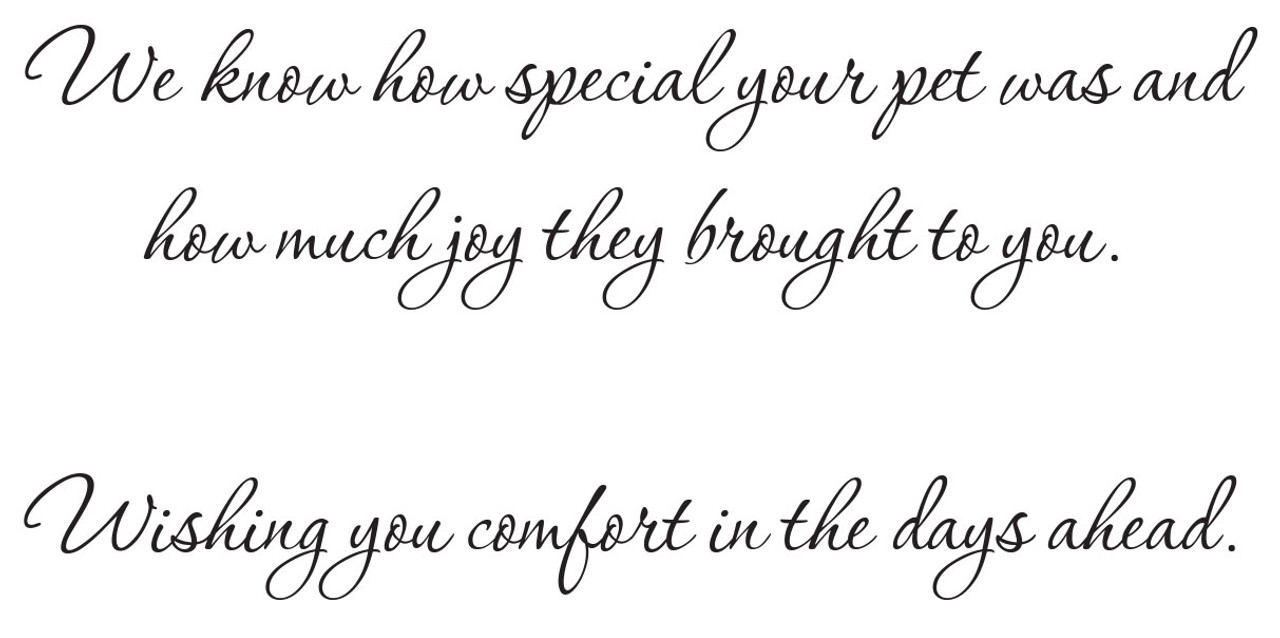 We know how special your pet was and
how much joy they brought to you.
Wishing you comfort in the days ahead.